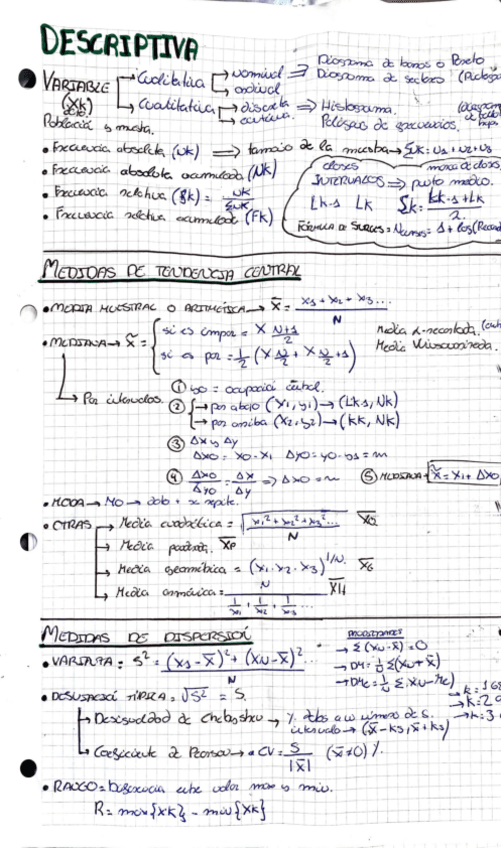 DESCRIPTIVA
VARIABLE → Cualitativa → nominal ⇒ Diagrama de barras o Pareto
→ ordinal Diagrama de sectores
(Xk) → Cuantitativa → discreta ⇒ Histograma.
→ continua Polígono de frecuencias.
Población y muestra.
• Frecuencia absoluta (nk) ⇒ tamaño de la muestra → Σk = n1 + n2 + n3
• Frecuencia absoluta acumulada (Nk)
clases marca de clases
• Frecuencia relativa (fk) = nk / Σnk
INTERVALOS ⇒ punto medio.
• Frecuencia relativa acumulada (Fk)
Lk-1 Lk Σk = Lk-1 + Lk / 2
FÓRMULA DE STURGES = Nclases = 1 + log(
MEDIDAS DE TENDENCIA CENTRAL
• MEDIA MUESTRAL O ARITMÉTICA → X̄ = x1 + x2 + x3... / N
• MEDIANA → X̃ = { si es impar = X N+1 / 2
si es par = 1/2 (X N/2 + X N/2 + 1)
Media α-recortada.
Media Winsorizada.
→ Por intervalos.
① y0 = ocupación central.
② → por abajo (x1, y1) → (Lk-1, Nk)
→ por arriba (x2, y2) → (Lk, Nk)
③ Δx y Δy
Δx0 = x0 - x1 Δy0 = y0 - y1 = m
④ Δx0 / Δy0 = Δx / Δy ⇒ Δx0 = m
⑤ MEDIANA = X̃ = x1 + Δx0
• MODA → Mo → dato + se repite.
• OTRAS → Media cuadrática = √x1² + x2² + x3²... / N X̄Q
→ Media ponderada. X̄P
→ Media geométrica = (x1 · x2 · x3)^1/N. X̄G
→ Media armónica = N / 1/x1 + 1/x2 + 1/x3 ... X̄H
MEDIDAS DE DISPERSIÓN
• VARIANZA: S² = (x1 - X̄)² + (xN - X̄)² ... / N
→ Σ(xN - X̄) = 0
→ DM = 1/N Σ(xN + X̄)
→ DMe = 1/N Σ. xN - Me)
• DESVIACIÓN TÍPICA = √S² = S.
→ Desigualdad de Chebyshev → % datos a un número de S.
intervalo → (X̄ - ks, X̄ + ks)
→ k = 1 68
→ k = 2
→ k = 3
→ Coeficiente de Pearson → CV = S / |X̄| (X̄ ≠ 0) %.
• RANGO = Diferencia entre valor max y min.
R = max{xk} - min{xk}